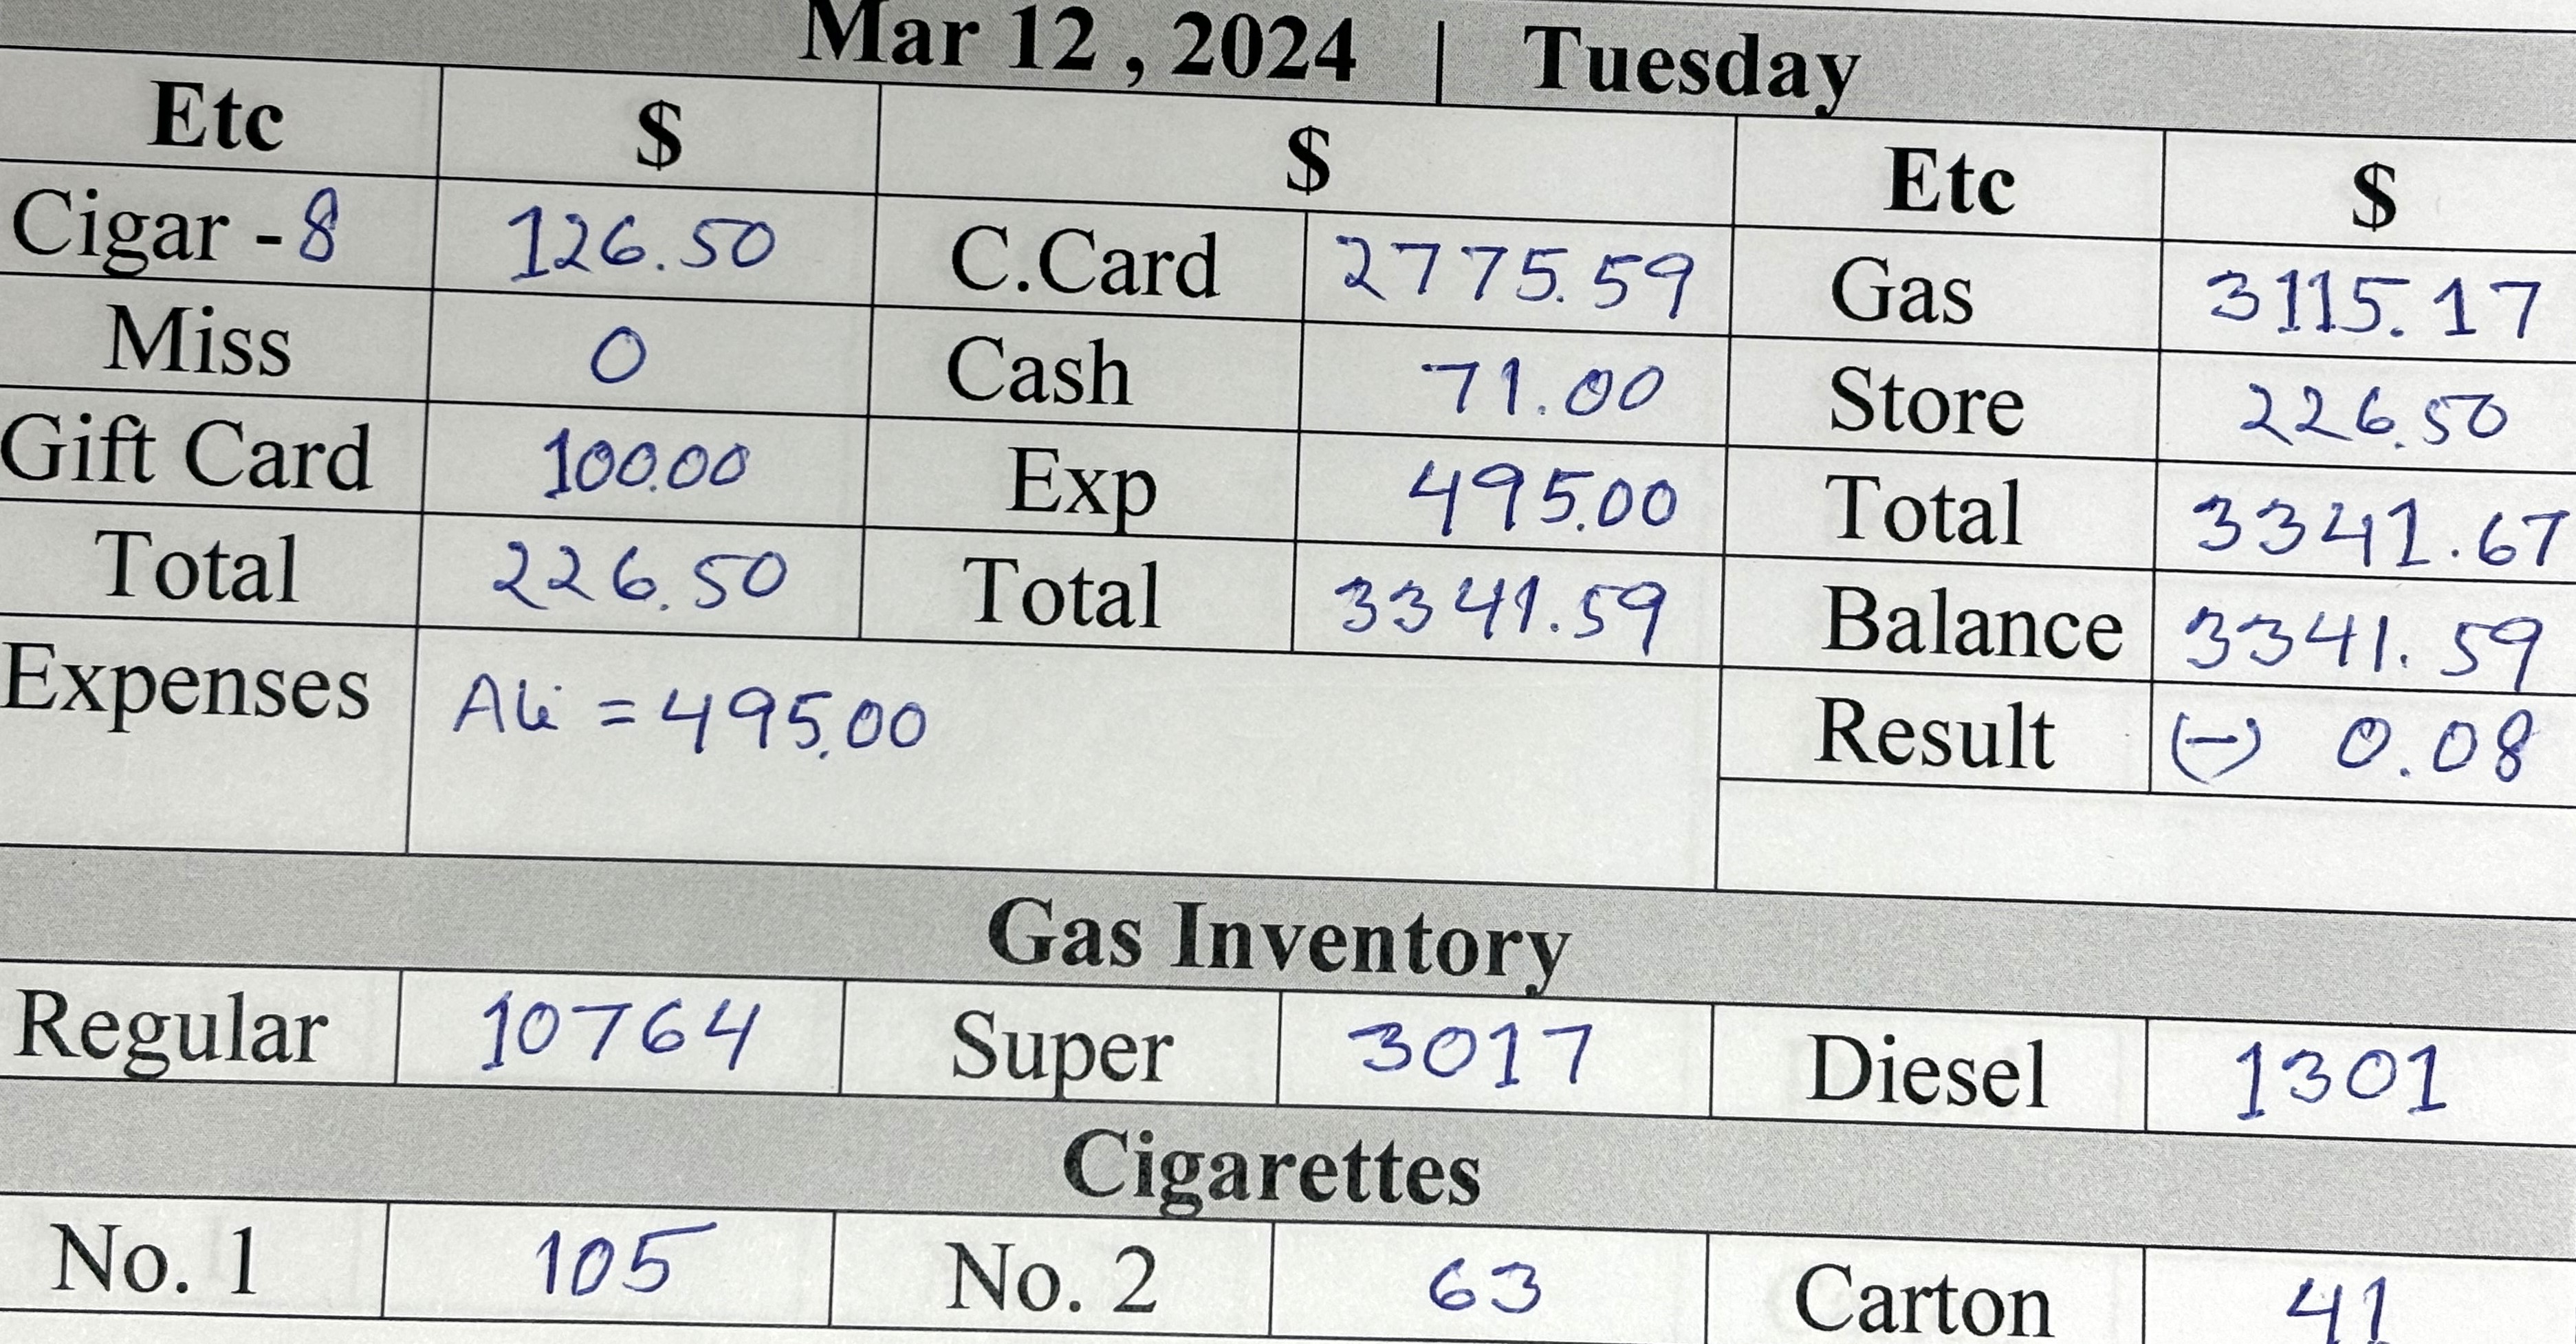 Mar 12 , 2024 | Tuesday
Etc $ $ Etc $
Cigar - 8 126.50 C.Card 2775.59 Gas 3115.17
Miss 0 Cash 71.00 Store 226.50
Gift Card 100.00 Exp 495.00 Total 3341.67
Total 226.50 Total 3341.59 Balance 3341.59
Expenses Ali = 495.00 Result (-) 0.08
Gas Inventory
Regular 10764 Super 3017 Diesel 1301
Cigarettes
No. 1 105 No. 2 63 Carton 41